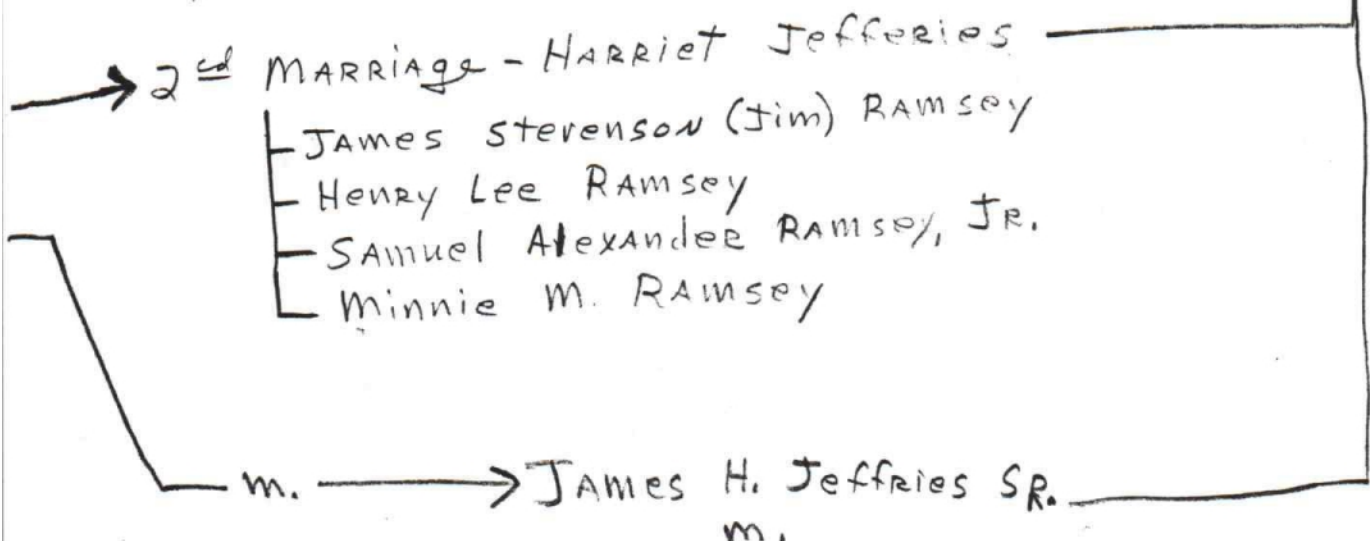 2cd Marriage - Harriet Jefferies
James Stevenson (Jim) Ramsey
Henry Lee Ramsey
Samuel Alexander Ramsey, Jr.
Minnie M. Ramsey
m. James H. Jeffries Sr.
m.